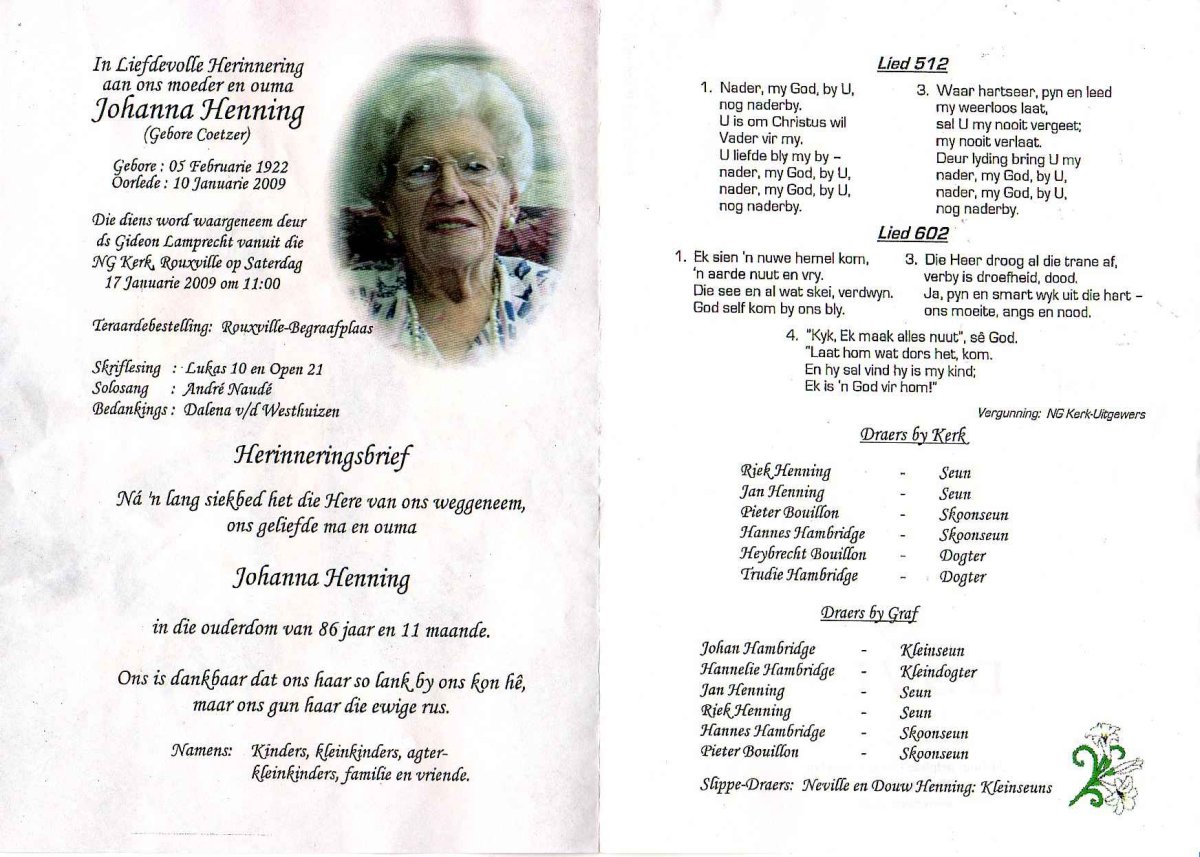 In Liefdevolle Herinnering
aan ons moeder en ouma
Johanna Henning
(Gebore Coetzer)
Gebore : 05 Februarie 1922
Oorlede : 10 Januarie 2009
Die diens word waargeneem deur
ds Gideon Lamprecht vanuit die
NG Kerk, Rouxville op Saterdag
17 Januarie 2009 om 11:00
Teraardebestelling: Rouxville-Begraafplaas
Skriflesing : Lukas 10 en Open 21
Solosang : André Naudé
Bedankings : Dalena v/d Westhuizen
Herinneringsbrief
Ná 'n lang siekbed het die Here van ons weggeneem,
ons geliefde ma en ouma
Johanna Henning
in die ouderdom van 86 jaar en 11 maande.
Ons is dankbaar dat ons haar so lank by ons kon hê,
maar ons gun haar die ewige rus.
Namens: Kinders, kleinkinders, agter-
kleinkinders, familie en vriende.
Lied 512
1. Nader, my God, by U,
nog naderby.
U is om Christus wil
Vader vir my.
U liefde bly my by –
nader, my God, by U,
nader, my God, by U,
nog naderby.
3. Waar hartseer, pyn en leed
my weerloos laat,
sal U my nooit vergeet;
my nooit verlaat.
Deur lyding bring U my
nader, my God, by U,
nader, my God, by U,
nog naderby.
Lied 602
1. Ek sien 'n nuwe hemel kom,
'n aarde nuut en vry.
Die see en al wat skei, verdwyn.
God self kom by ons bly.
3. Die Heer droog al die trane af,
verby is droefheid, dood.
Ja, pyn en smart wyk uit die hart –
ons moeite, angs en nood.
4. "Kyk, Ek maak alles nuut", sê God.
"Laat hom wat dors het, kom.
En hy sal vind hy is my kind;
Ek is 'n God vir hom!"
Vergunning: NG Kerk-Uitgewers
Draers by Kerk
Riek Henning - Seun
Jan Henning - Seun
Pieter Bouillon - Skoonseun
Hannes Hambridge - Skoonseun
Heybrecht Bouillon - Dogter
Trudie Hambridge - Dogter
Draers by Graf
Johan Hambridge - Kleinseun
Hannelie Hambridge - Kleindogter
Jan Henning - Seun
Riek Henning - Seun
Hannes Hambridge - Skoonseun
Pieter Bouillon - Skoonseun
Slippe-Draers: Neville en Douw Henning: Kleinseuns